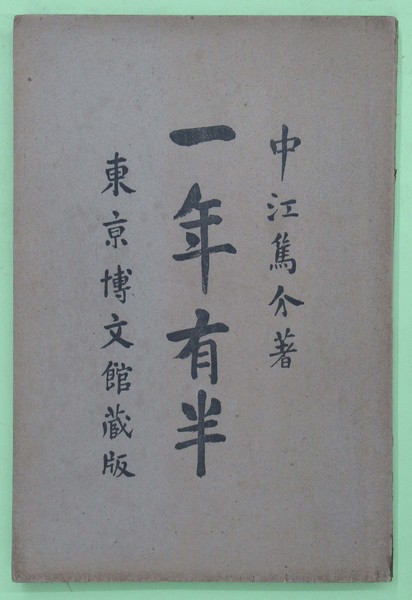 中江篤介著
一年有半
東京博文館蔵版